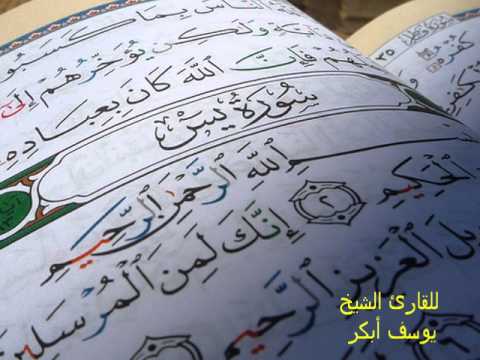 النَّاسَ بِمَا كَسَبُو
وَلَٰكِن يُؤَخِّرُهُمْ إِلَىٰ
فَإِنَّ ٱللَّهَ كَانَ بِعِبَادِهِ
سُورَةُ يسٓ
ٱللَّهِ ٱلرَّحْمَٰنِ ٱلرَّحِيمِ
ٱلْحَكِيمِ ٢ إِنَّكَ لَمِنَ ٱلْمُرْسَلِين
يلَ ٱلْعَزِيزِ ٱلرَّحِيمِ
للقارئ الشيخ
يوسف أبكر